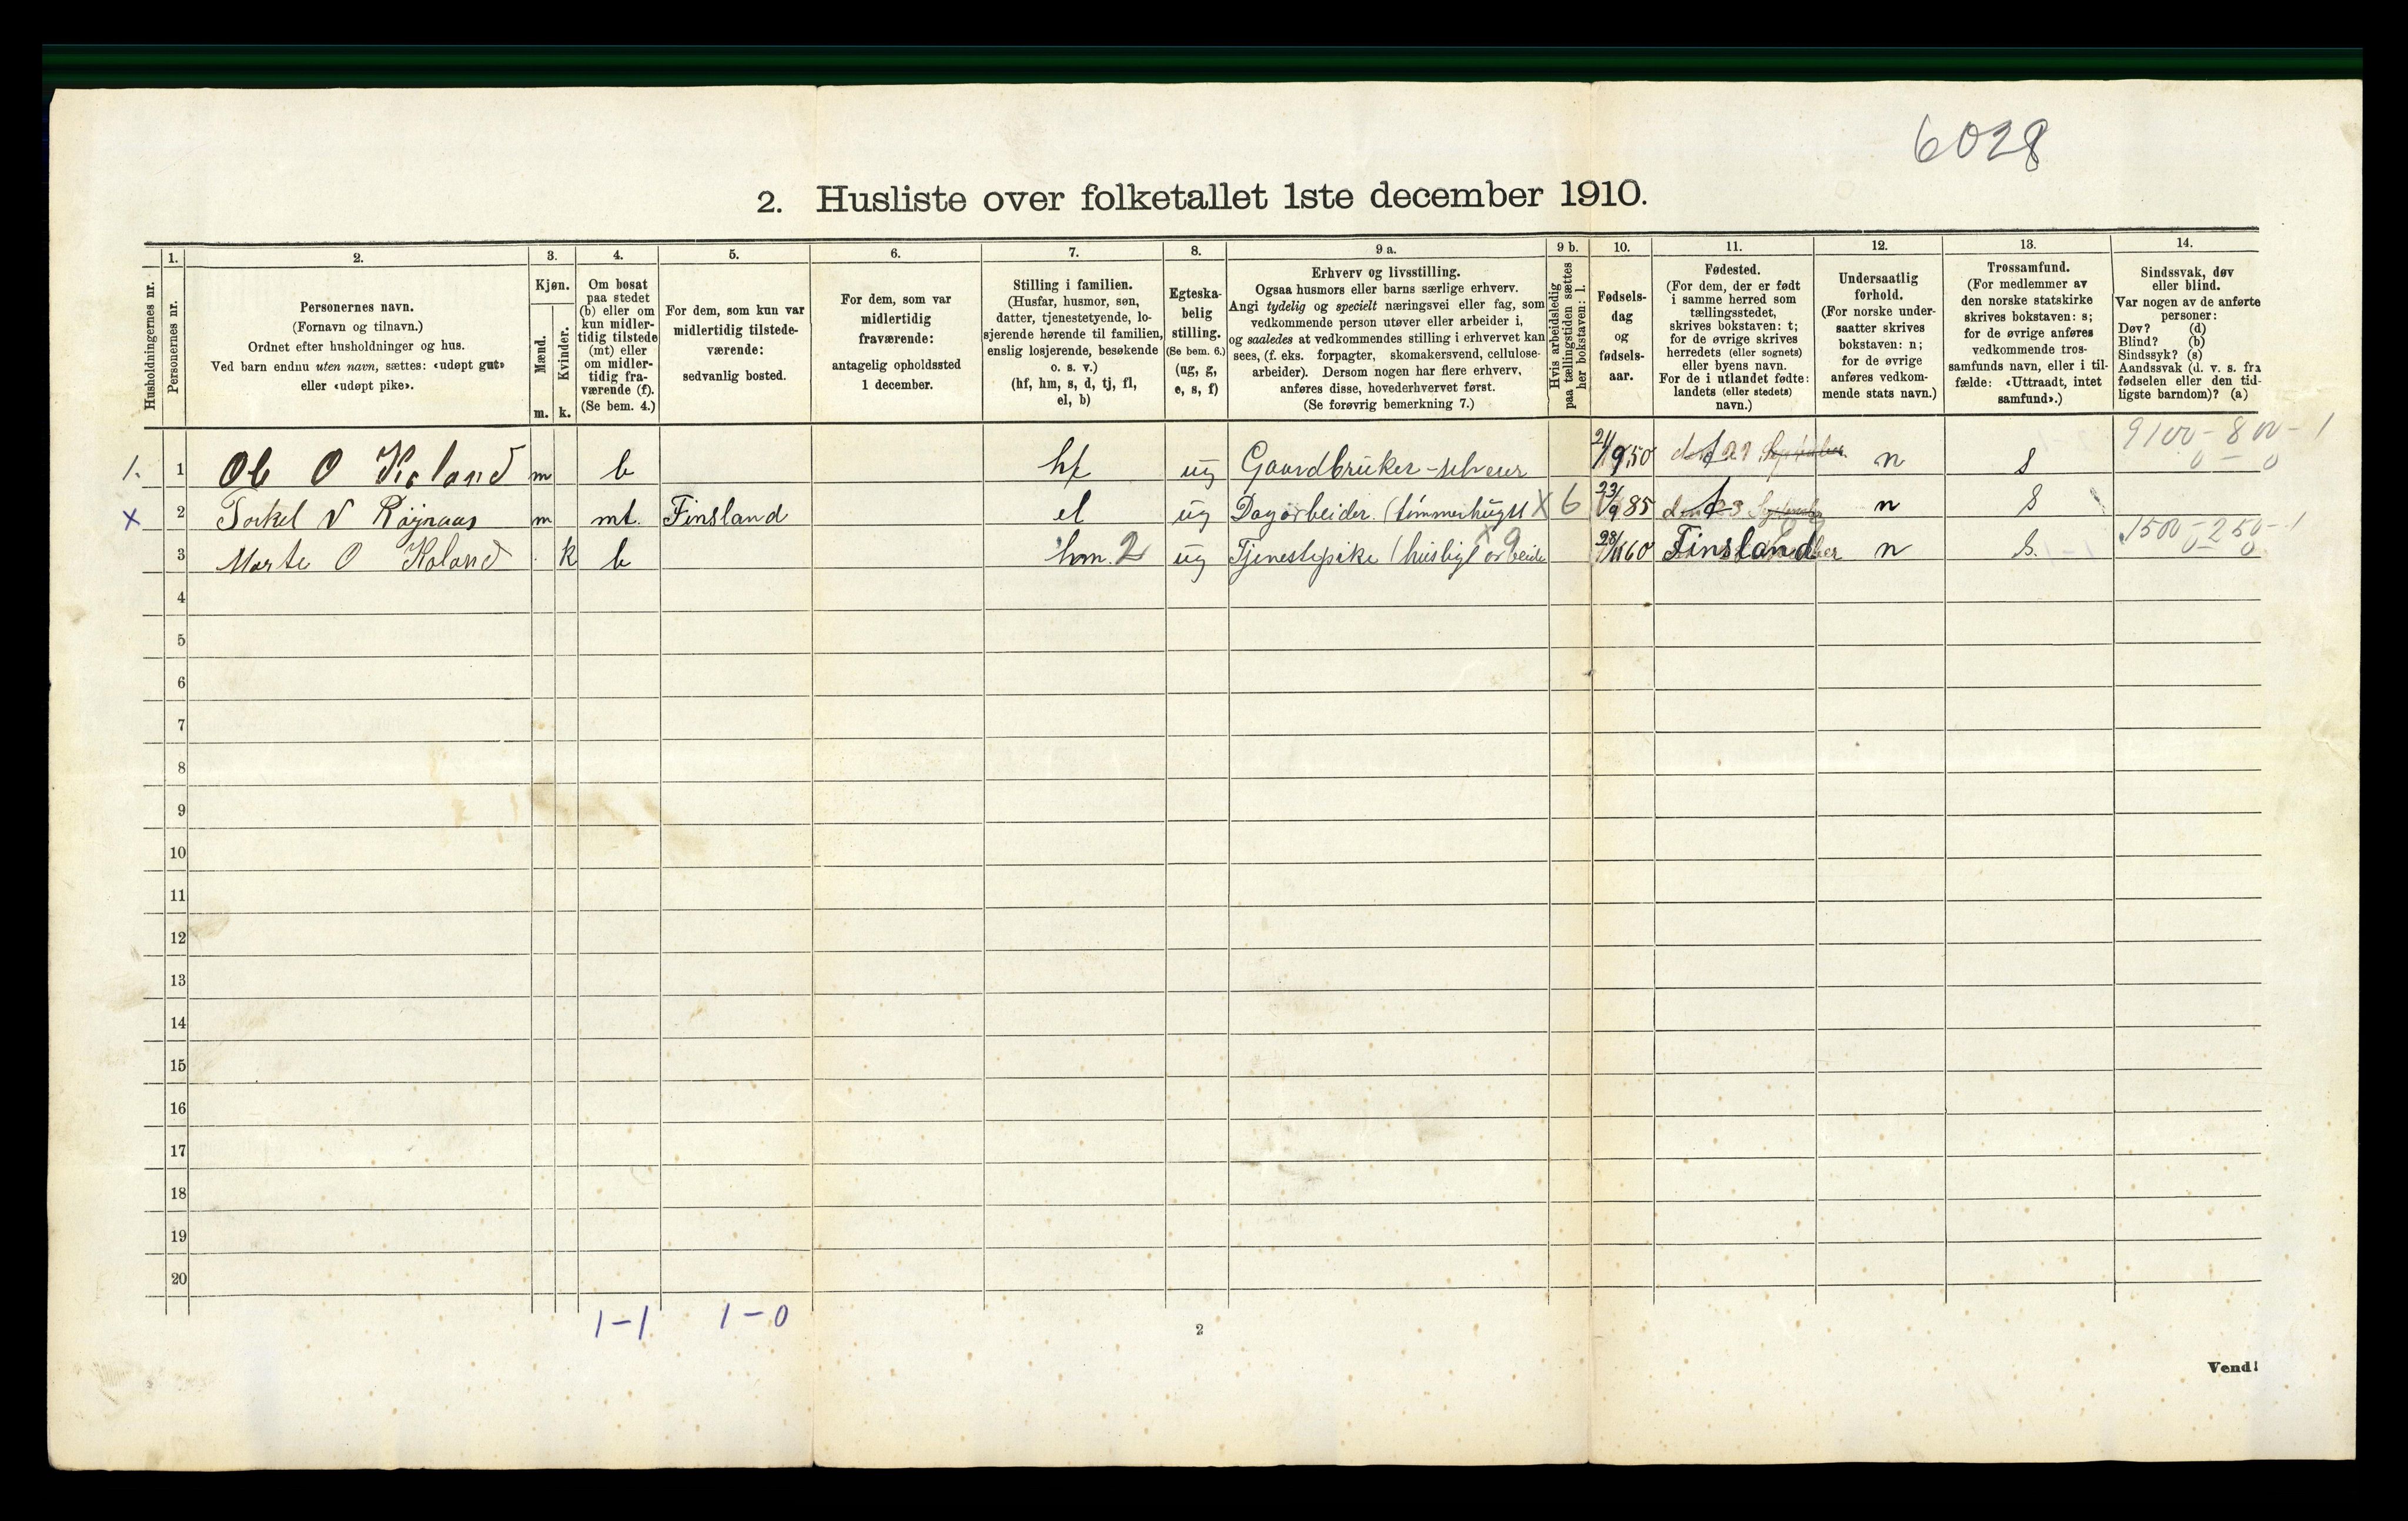 6028
2. Husliste over folketallet 1ste december 1910.
Husholdningernes nr.
1.
Personernes nr.
2.
Personernes navn.
(Fornavn og tilnavn.)
Ordnet efter husholdninger og hus.
Ved barn endnu uten navn, sættes: «udøpt gut»
eller «udøpt pike».
3.
Kjøn.
Mænd.
m.
Kvinder.
k.
4.
Om bosat
paa stedet
(b) eller om
kun midler-
tidig tilstede
(mt) eller
om midler-
tidig fra-
værende (f).
(Se bem. 4.)
5.
For dem, som kun var
midlertidig tilstede-
værende:
sedvanlig bosted.
6.
For dem, som var
midlertidig
fraværende:
antagelig opholdssted
1 december.
7.
Stilling i familien.
(Husfar, husmor, søn,
datter, tjenestetyende, lo-
sjerende hørende til familien,
enslig losjerende, besøkende
o. s. v.)
(hf, hm, s, d, tj, fl,
el, b)
8.
Egteska-
belig
stilling.
(Se bem. 6.)
(ug, g,
e, s, f)
9 a.
Erhverv og livsstilling.
Ogsaa husmors eller barns særlige erhverv.
Angi tydelig og specielt næringsvei eller fag, som
vedkommende person utøver eller arbeider i,
og saaledes at vedkommendes stilling i erhvervet kan
sees, (f. eks. forpagter, skomakersvend, cellulose-
arbeider). Dersom nogen har flere erhverv,
anføres disse, hovederhvervet først.
(Se forøvrig bemerkning 7.)
9 b.
Hvis arbeidsledig
paa tællingstiden sættes
her bokstaven: l.
10.
Fødsels-
dag
og
fødsels-
aar.
11.
Fødested.
(For dem, der er født
i samme herred som
tællingsstedet,
skrives bokstaven: t;
for de øvrige skrives
herredets (eller sognets)
eller byens navn.
For de i utlandet fødte:
landets (eller stedets)
navn.)
12.
Undersaatlig
forhold.
(For norske under-
saatter skrives
bokstaven: n;
for de øvrige
anføres vedkom-
mende stats navn.)
13.
Trossamfund.
(For medlemmer av
den norske statskirke
skrives bokstaven: s;
for de øvrige anføres
vedkommende tros-
samfunds navn, eller i til-
fælde: «Uttraadt, intet
samfund».)
14.
Sindssvak, døv
eller blind.
Var nogen av de anførte
personer:
Døv? (d)
Blind? (b)
Sindssyk? (s)
Aandssvak (d. v. s. fra
fødselen eller den tid-
ligste barndom)? (a)
9100-800-1
0-0
1. 1 O Koland m b hf ug Gaardbruker - selveier 21/9 50 t n s
x 2 Torkel V Røynaas m mt. Finsland el ug Dagarbeider (tømmerhugst X 6 23/9 85 t n s
1500-250-1
0-0
3 Marte O Koland k b hm. 2 ug Tjenestepike (husligt arbeide x 9 28/11 60 Finsland n s.
4
5
6
7
8
9
10
11
12
13
14
15
16
17
18
19
20
1-1 1-0
2
Vend!